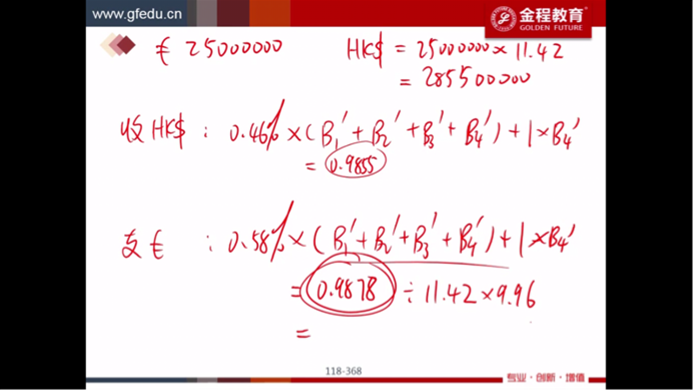 www.gfedu.cn
金程教育
GOLDEN FUTURE
€ 25000000 HK$ = 25000000 × 11.42
= 285500000
收 HK$ : 0.46% × ( B₁' + B₂' + B₃' + B₄' ) + 1 × B₄'
= 0.9855
支 € : 0.58% × ( B₁' + B₂' + B₃' + B₄' ) + 1 × B₄'
= 0.9878 ÷ 11.42 × 9.96
=
118-368
专业·创新·增值